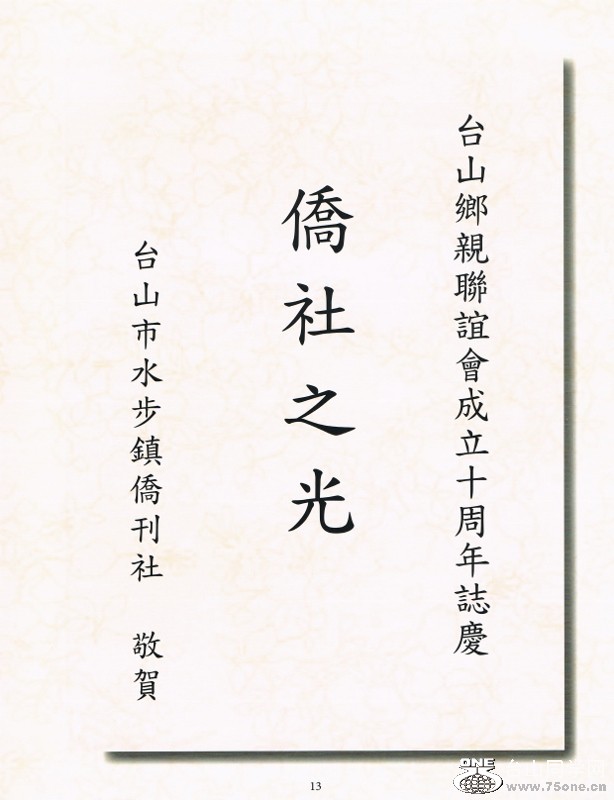 台山鄉親聯誼會成立十周年誌慶
僑社之光
台山市水步鎮僑刊社 敬賀
13
ONE
www.75one.cn